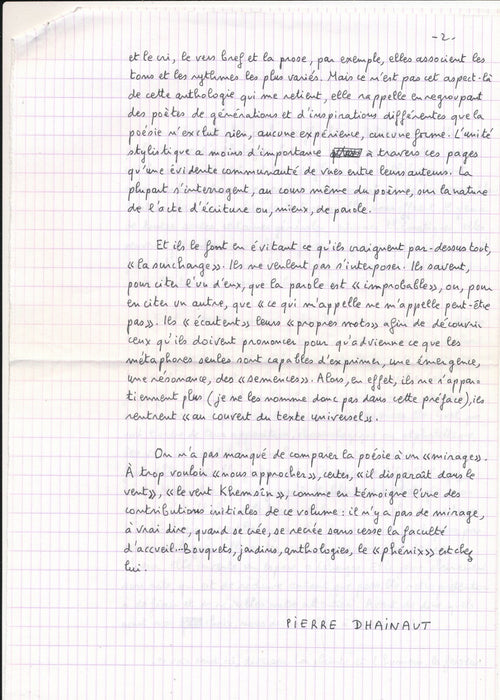 -2.
et le cri, le vers bref et la prose, par exemple, elles associent les
tons et les rythmes les plus variés. Mais ce n'est pas cet aspect-là
de cette anthologie qui me retient, elle rappelle en regroupant
des poètes de générations et d'inspirations différentes que la
poésie n'exclut rien, aucune expérience, aucune forme. L'unité
stylistique a moins d'importance à travers ces pages
qu'une évidente communauté de vues entre leurs auteurs. La
plupart s'interrogent, au cours même du poème, sur la nature
de l'acte d'écriture ou, mieux, de parole.
Et ils le font en évitant ce qu'ils craignent par-dessus tout,
« la surcharge ». Ils ne veulent pas s'interposer. Ils savent,
pour citer l'un d'eux, que la parole est « improbable », ou, pour
en citer un autre, que « ce qui m'appelle ne m'appelle peut-être
pas ». Ils « écartent » leurs « propres mots » afin de découvrir
ceux qu'ils doivent prononcer pour qu'advienne ce que les
métaphores seules sont capables d'exprimer, une émergence,
une résonance, des « semences ». Alors, en effet, ils ne s'appar-
tiennent plus (je ne les nomme donc pas dans cette préface), ils
rentrent « au couvert du texte universel ».
On n'a pas manqué de comparer la poésie à un « mirage ».
À trop vouloir « nous approcher », certes, « il disparaît dans le
vent », « le vent Khemsin », comme en témoigne l'une des
contributions initiales de ce volume : il n'y a pas de mirage,
à vrai dire, quand se crée, se recrée sans cesse la faculté
d'accueil... Bouquets, jardins, anthologies, le « phénix » est chez
lui.
PIERRE DHAINAUT